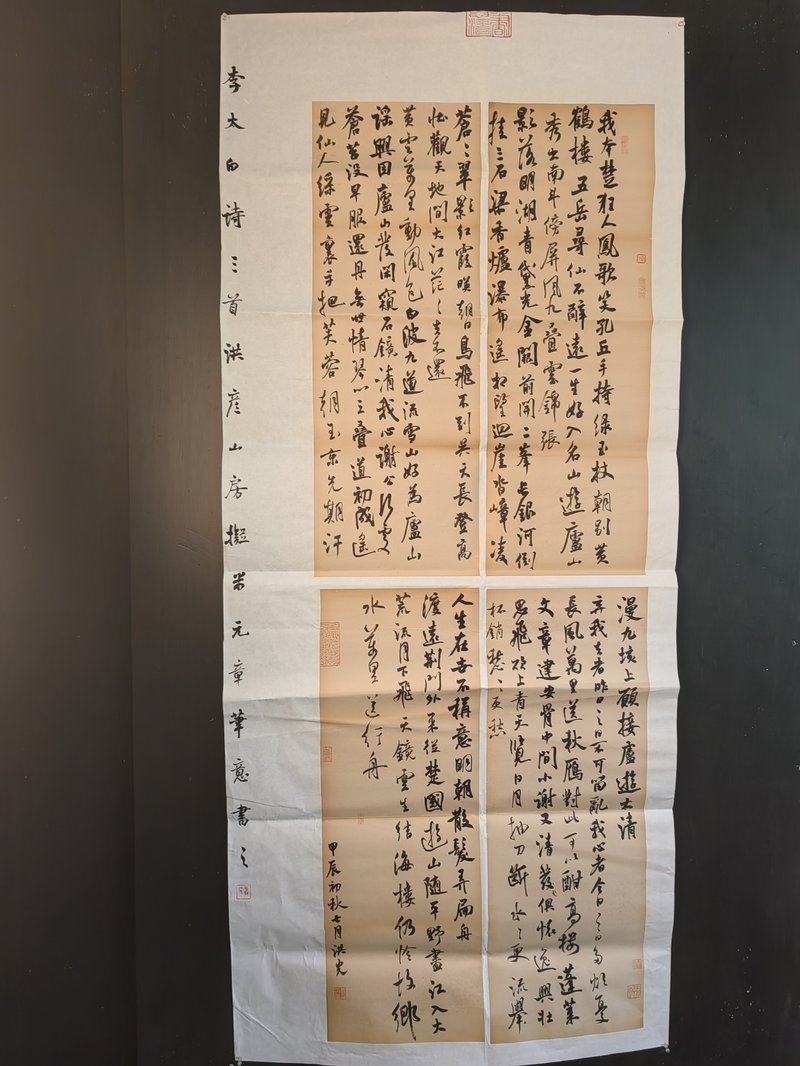 我本楚狂人鳳歌笑孔丘手持绿玉杖朝别黄
鶴樓五岳尋仙不辭遠一生好入名山遊廬山
秀出南斗傍屏風九疊雲錦張
影落明湖青黛光金闕前開二峯長銀河倒
挂三石梁香爐瀑布遙相望迴崖沓嶂凌
蒼〻翠影紅霞映朝日鳥飛不到吳天長登高
壯觀天地間大江茫〻去不還
黄雲萬里動風色白波九道流雪山好為廬山
謡興因廬山發閑窺石鏡清我心謝公行處
蒼苔没早服還丹無世情琴心三疊道初成遙
見仙人綵雲裏手把芙蓉朝玉京先期汗
漫九垓上願接盧遨太清
弃我去者昨日之日不可留亂我心者今日之日多煩憂
長風萬里送秋鴈對此可以酣高樓蓬萊
文章建安骨中間小謝又清發俱懷逸興壯
思飛欲上青天覽日月抽刀斷水〻更流舉
杯銷愁〻更愁
人生在世不稱意明朝散髮弄扁舟
渡遠荆門外来從楚國遊山隨平野盡江入大
荒流月下飛天鏡雲生结海樓仍怜故鄉
水萬里送行舟
甲辰初秋七月洪光
李太白诗三首洪彦山房擬米元章筆意書之